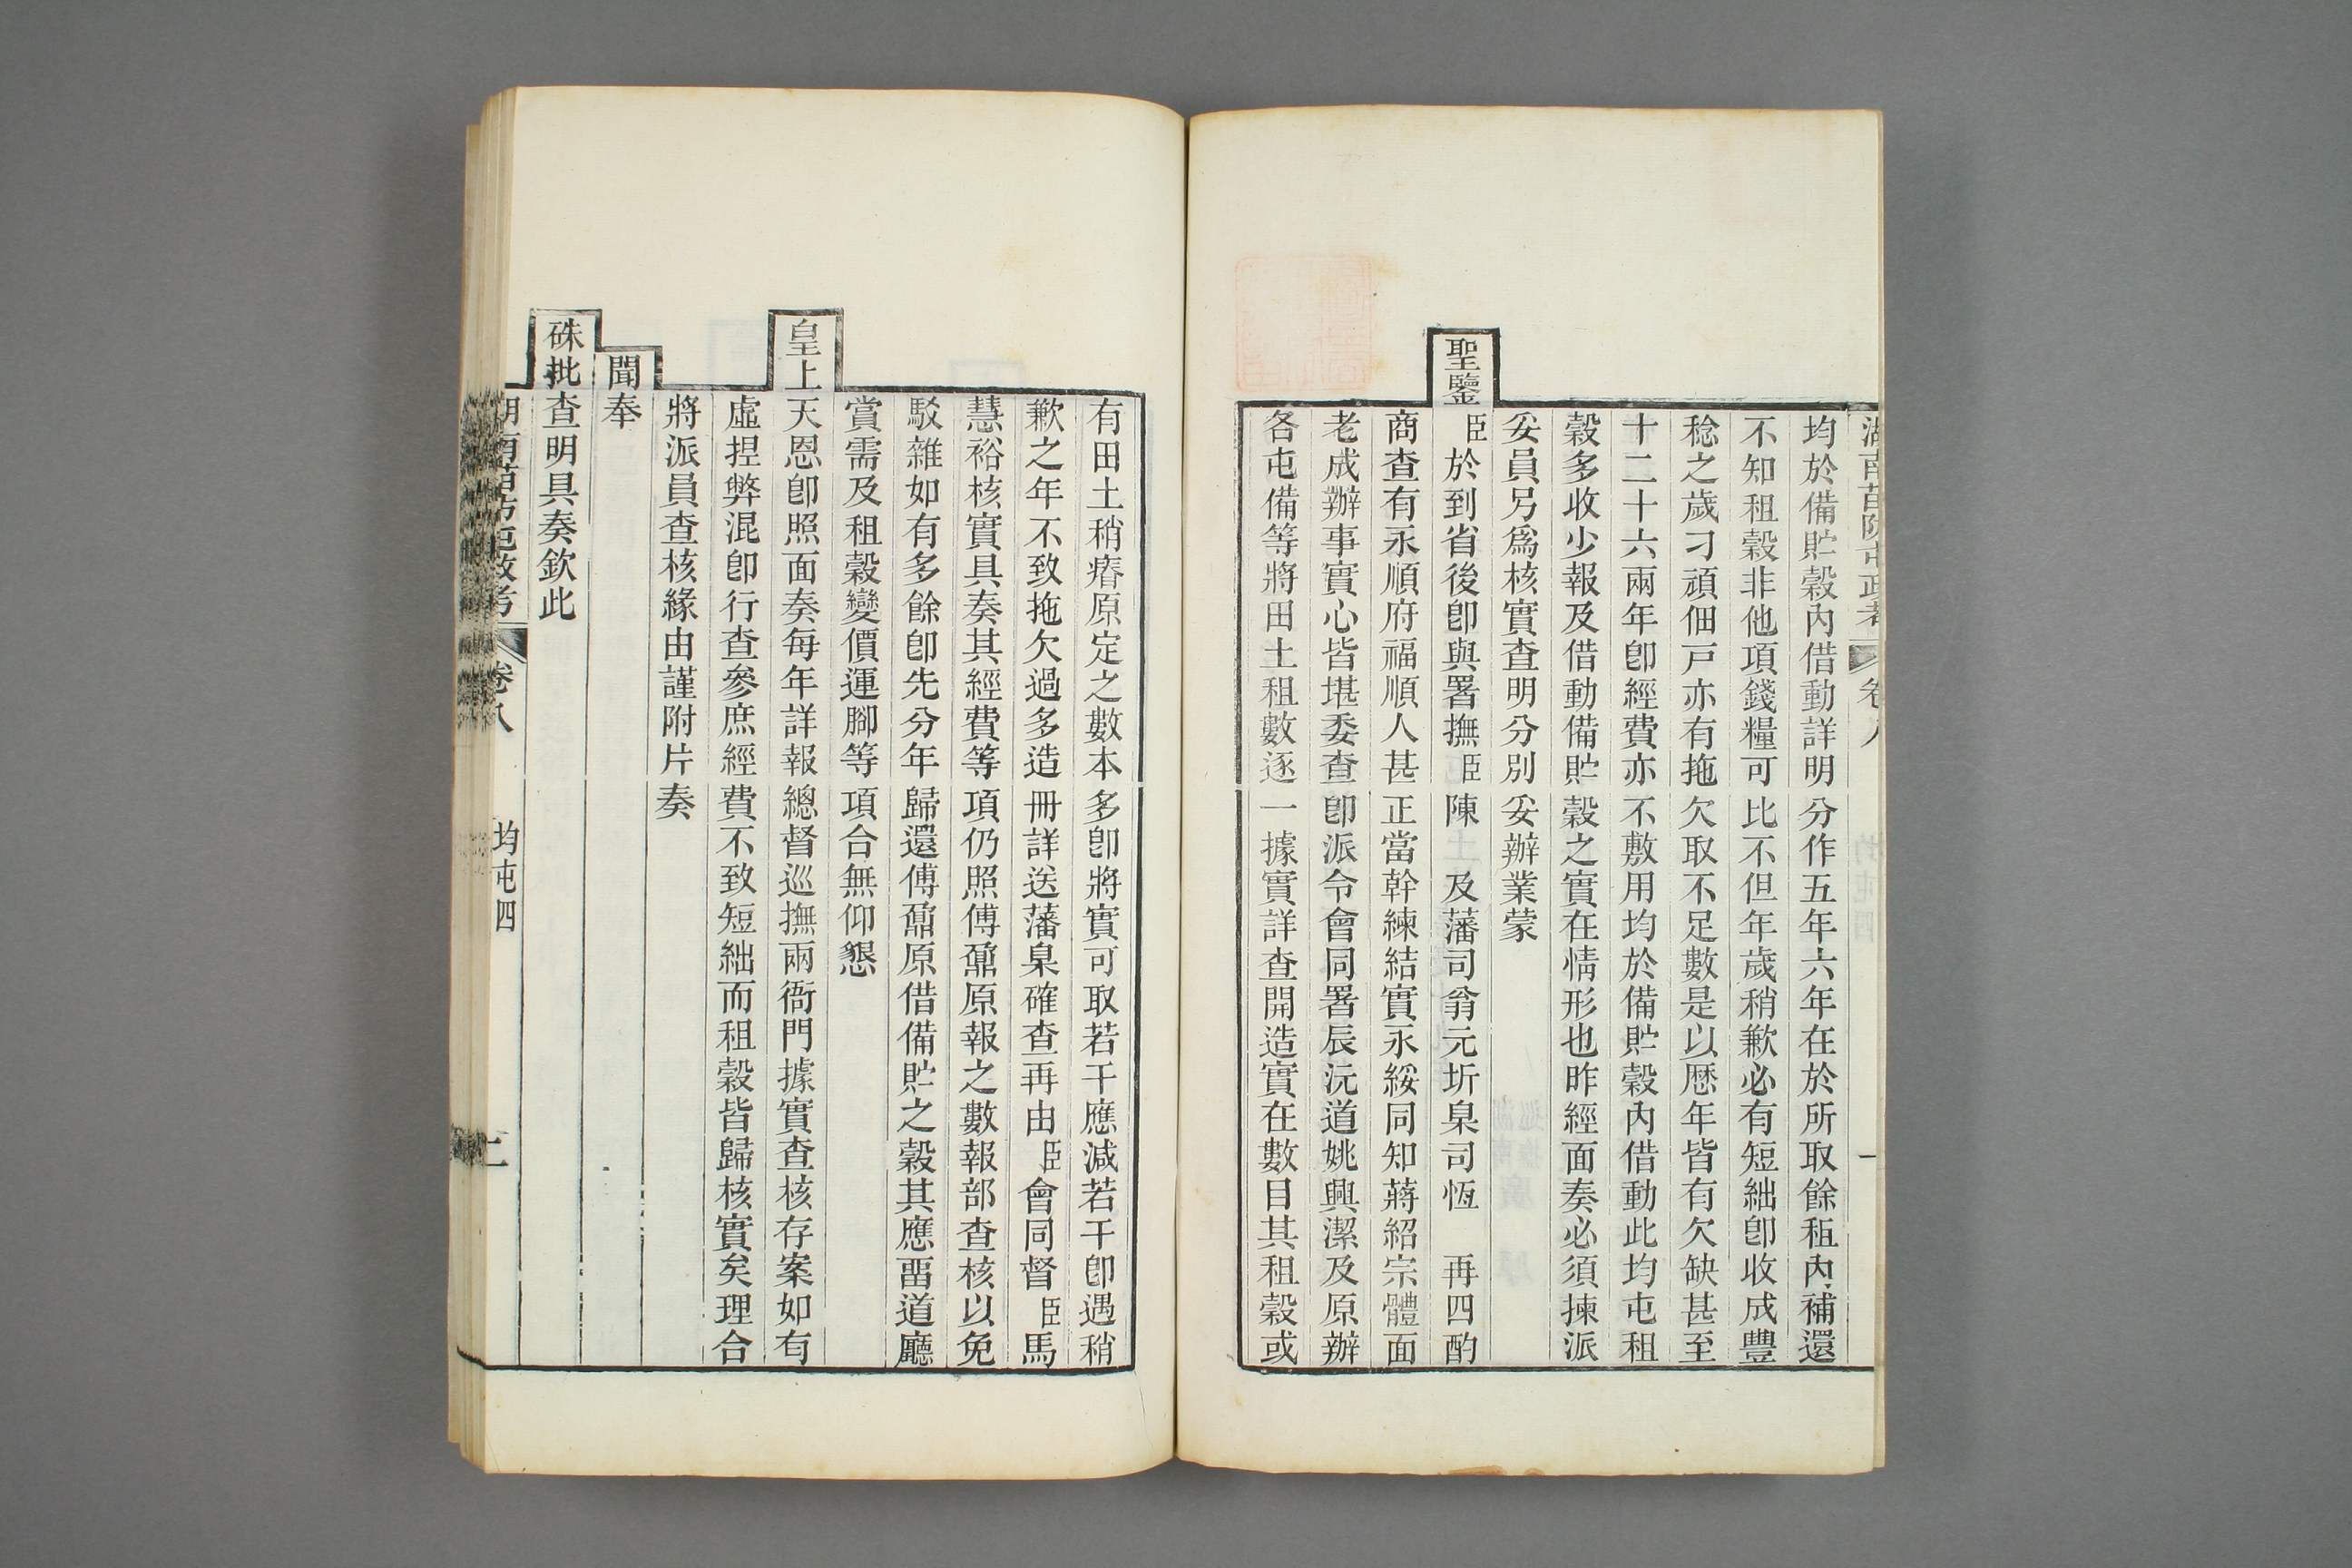 湖南苗防屯政考 卷八
均於備貯穀內借動詳明分作五年六年在於所取餘租內補還
不知租穀非他項錢糧可比不但年歲稍歉必有短絀卽收成豐
稔之歲刁頑佃戸亦有拖欠取不足數是以歷年皆有欠缺甚至
十二十六兩年卽經費亦不敷用均於備貯穀內借動此均屯租
穀多收少報及借動備貯穀之實在情形也昨經面奏必須揀派
妥員另爲核實查明分別妥辦業蒙
聖鑒臣於到省後卽與署撫臣陳及藩司翁元圻臬司恆 再四酌
商查有永順府福順人甚正當幹練結實永綏同知蔣紹宗體面
老成辦事實心皆堪委查卽派令會同署辰沅道姚興潔及原辦
各屯備等將田土租數逐一據實詳查開造實在數目其租穀或
有田土稍瘠原定之數本多卽將實可取若干應減若干卽遇稍
歉之年不致拖欠過多造冊詳送藩臬確查再由臣會同督臣馬
慧裕核實具奏其經費等項仍照傅鼐原報之數報部查核以免
駁雜如有多餘卽先分年歸還傅鼐原借備貯之穀其應畱道廳
賞需及租穀變價運腳等項合無仰懇
皇上天恩卽照面奏每年詳報總督巡撫兩衙門據實查核存案如有
虛捏弊混卽行查參庶經費不致短絀而租穀皆歸核實矣理合
將派員查核緣由謹附片奏
聞奉
硃批查明具奏欽此
湖南苗防屯政考 卷八 均屯四